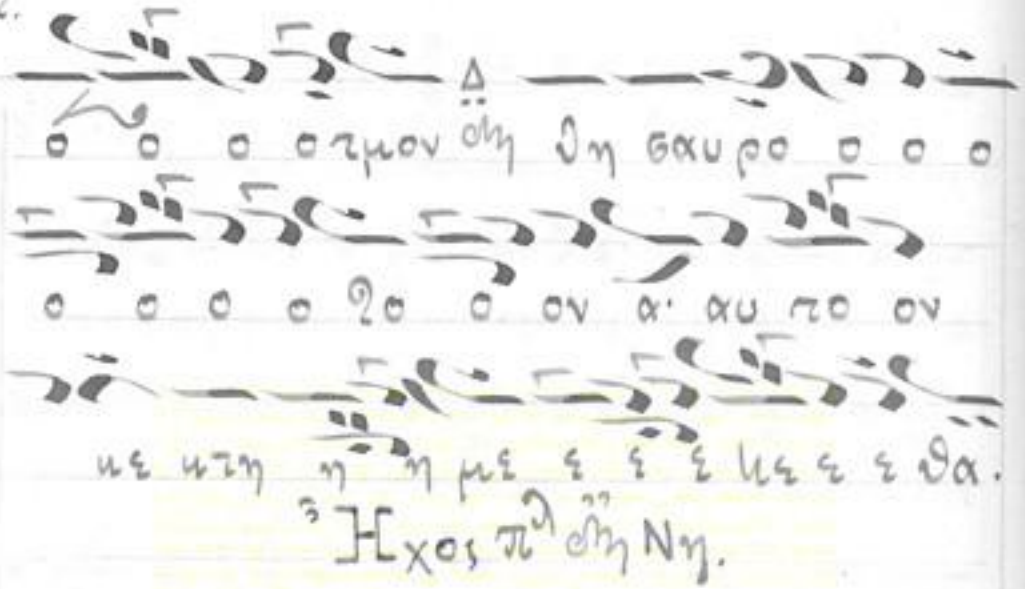 ο ο ο ο τμον δη θη σαυρο ο ο ο
ο ο ο ο ρο ο ον α. αυ το ον
κε κτη η η με ε ε ε κε ε ε θα.
Ηχος πλ δη Νη.